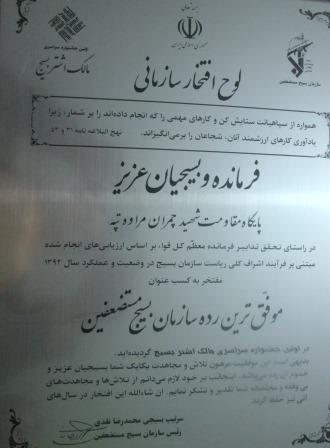 بسمه تعالی
جمهوری اسلامی ایران
اولین جشنواره سراسری
مالک اشتر بسیج
سازمان بسیج مستضعفین
لوح افتخار سازمانی
همواره از سپاهیانت ستایش کن و کارهای مهمی را که انجام داده‌اند را بر شمار، زیرا
یادآوری کارهای ارزشمند آنان، شجاعان را برمی‌انگیزاند. نهج البلاغه نامه ۳۱ و ۵۳
فرمانده و بسیجیان عزیز
پایگاه مقاومت شهید چمران مراوه تپه
در راستای تحقق تدابیر فرمانده معظم کل قوا، بر اساس ارزیابی‌های انجام شده
مبتنی بر فرآیند اشراف کلی ریاست سازمان بسیج در وضعیت و عملکرد سال ۱۳۹۲
مفتخر به کسب عنوان
موفق ترین رده سازمان بسیج مستضعفین
در اولین جشنواره سراسری مالک اشتر بسیج گردیده‌اید.
بدیهی است این موفقیت مرهون تلاش و مجاهدت یکایک شما بسیجیان عزیز و
خدوم آن رده می‌باشد. اینجانب بر خود لازم می‌دانم از تلاش‌ها و مجاهدت‌های
بی وقفه و مخلصانه شما تقدیر و تشکر نمایم. ان شاءالله این افتخار در سال‌های
آتی نیز حفظ گردد.
سرتیپ بسیجی محمدرضا نقدی
رئیس سازمان بسیج مستضعفین